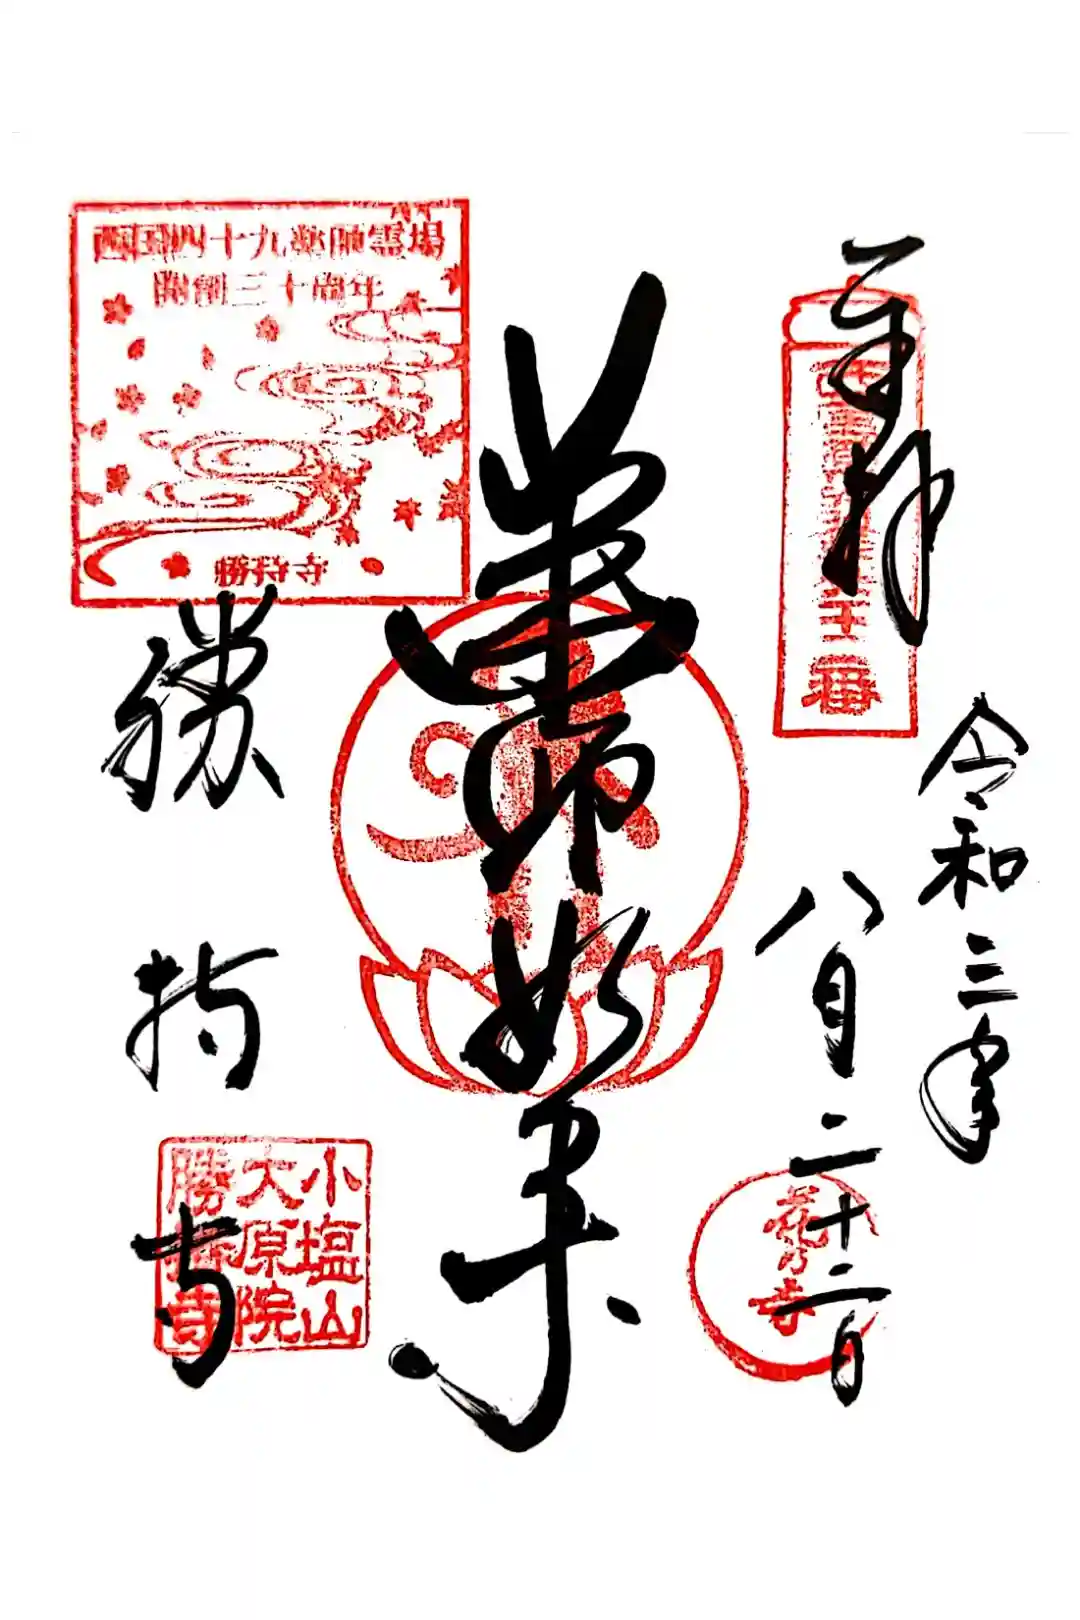 奉拝
令和三年
八月二十二日
花の寺
薬師如来
西国四十九薬師霊場
開創三十周年
勝持寺
勝持寺
小塩山
大原院
勝持寺